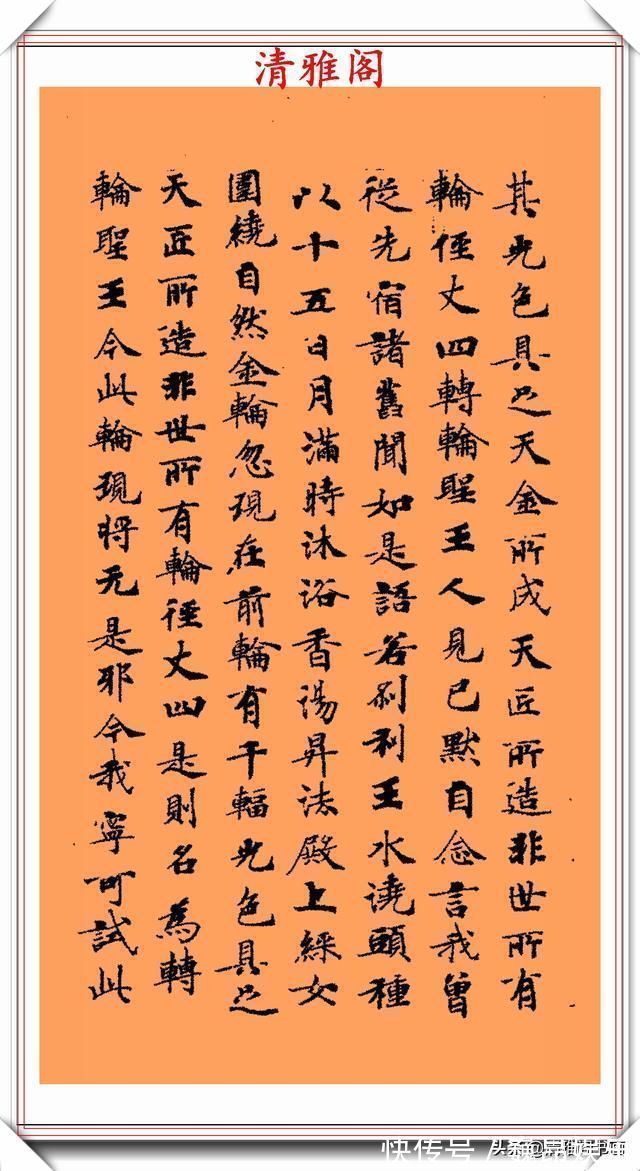 清雅阁
其光色具足天金所成天匠所造非世所有
輪侄丈四轉輪聖王人見已默自念言我曾
從先宿諸舊聞如是語若刹利王水澆頭種
以十五日月滿時沐浴香湯昇法殿上綵女
圍繞自然金輪忽現在前輪有千輻光色具足
天匠所造非世所有輪徑丈四是則名為轉
輪聖王今此輪現將无是耶今我寧可試此
快传号
头条@清雅阁书画